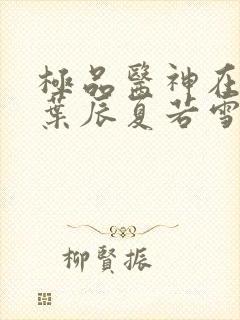 極品醫神在
葉辰夏若雪
柳賢振